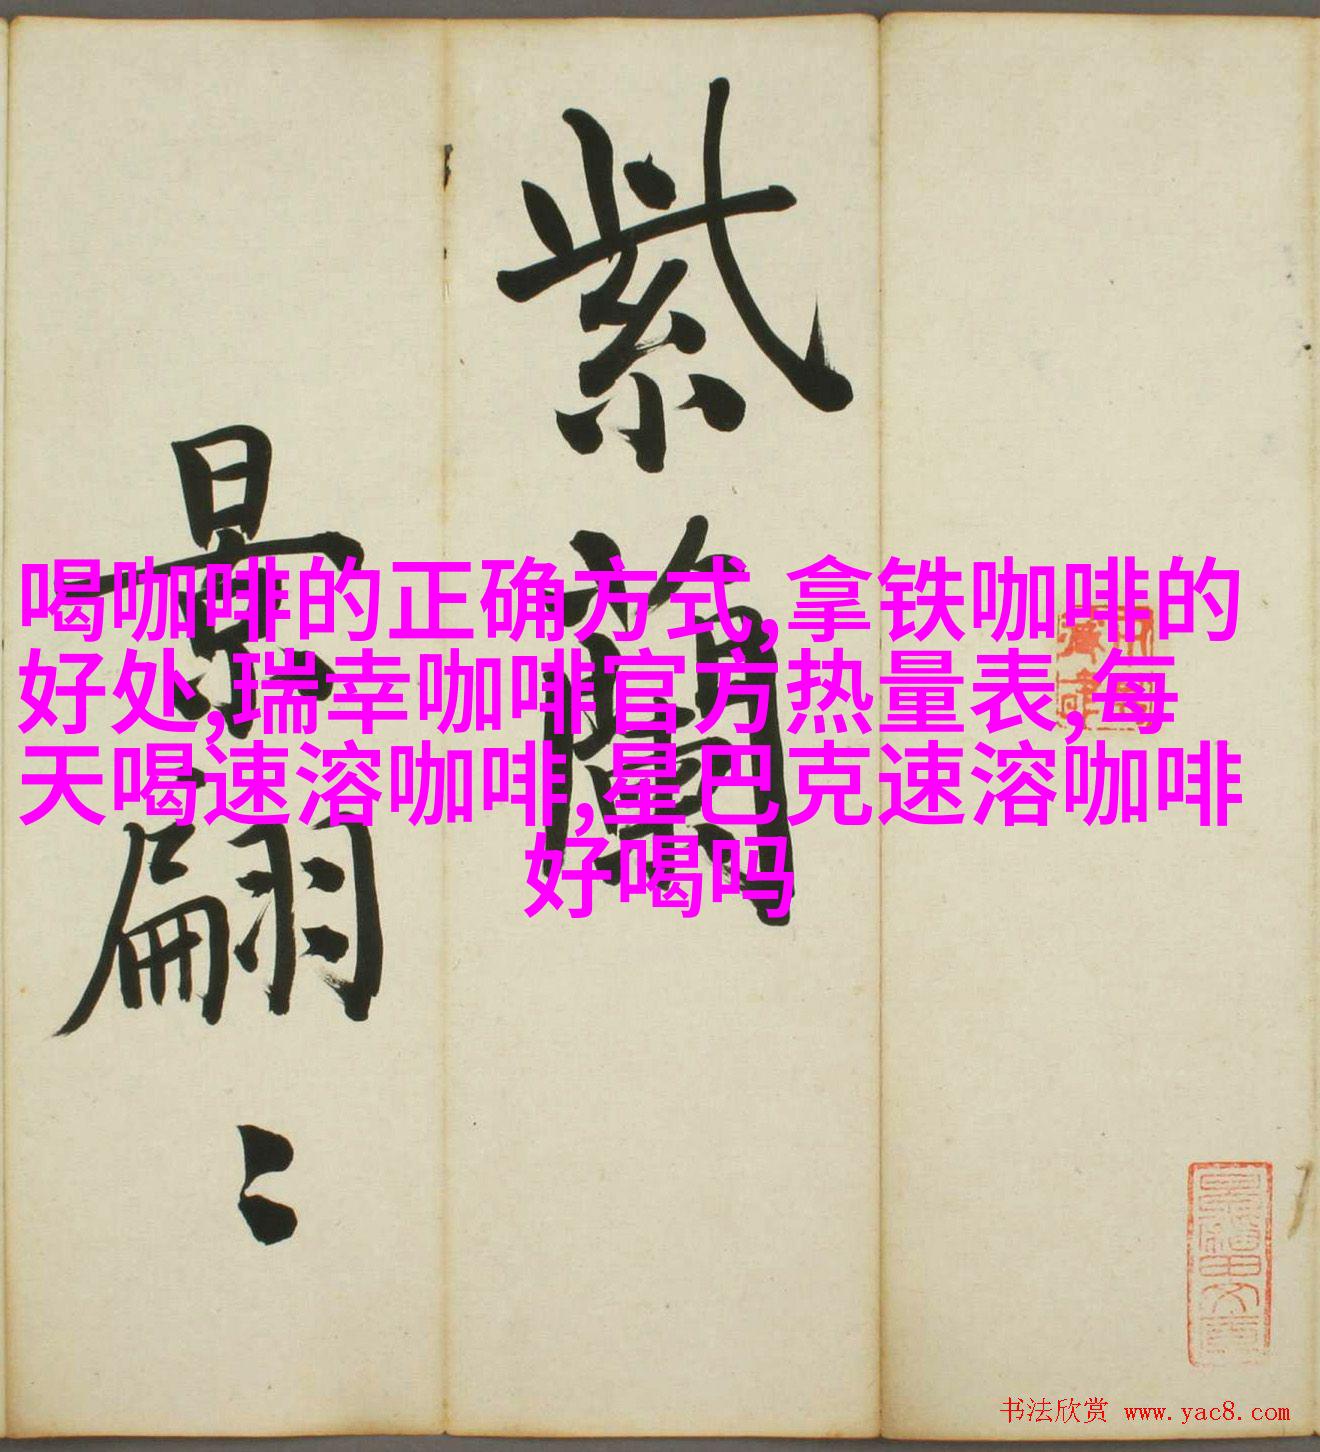 紫蘭
景翩〻
喝咖啡的正确方式,拿铁咖啡的
好处,瑞幸咖啡官方热量表,每
天喝速溶咖啡,星巴克速溶咖啡
好喝吗
书法欣赏 www.yac8.com